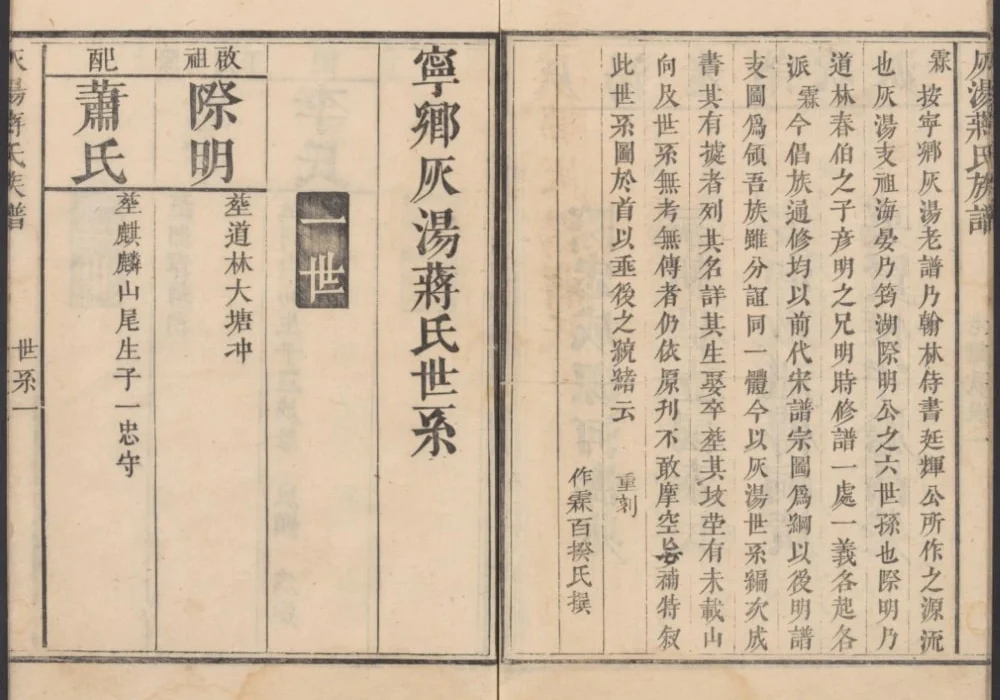 灰湯蔣氏族譜
霖按寧鄉灰湯老譜乃翰林侍書廷輝公所作之源流
也灰湯支祖海晏乃筠湖際明公之六世孫也際明乃
道林春伯之子彥明之兄明時修譜一處一義各起各
派霖今倡族通修均以前代宋譜宗圖爲綱以後明譜
支圖爲領吾族雖分誼同一體今以灰湯世系編次成
書其有據者列其名詳其生娶卒塟其坟塋有未載山
向及世系無考無傳者仍依原刊不敢摩空補特叙
此世系圖於首以垂後之統緒云 重刻
作霖百揆氏撰
寧鄉灰湯蔣氏世系
一世
啟祖
際明
塟道林大塘冲
配
蕭氏
塟麒麟山尾生子一忠守
灰湯蔣氏族譜
世系一